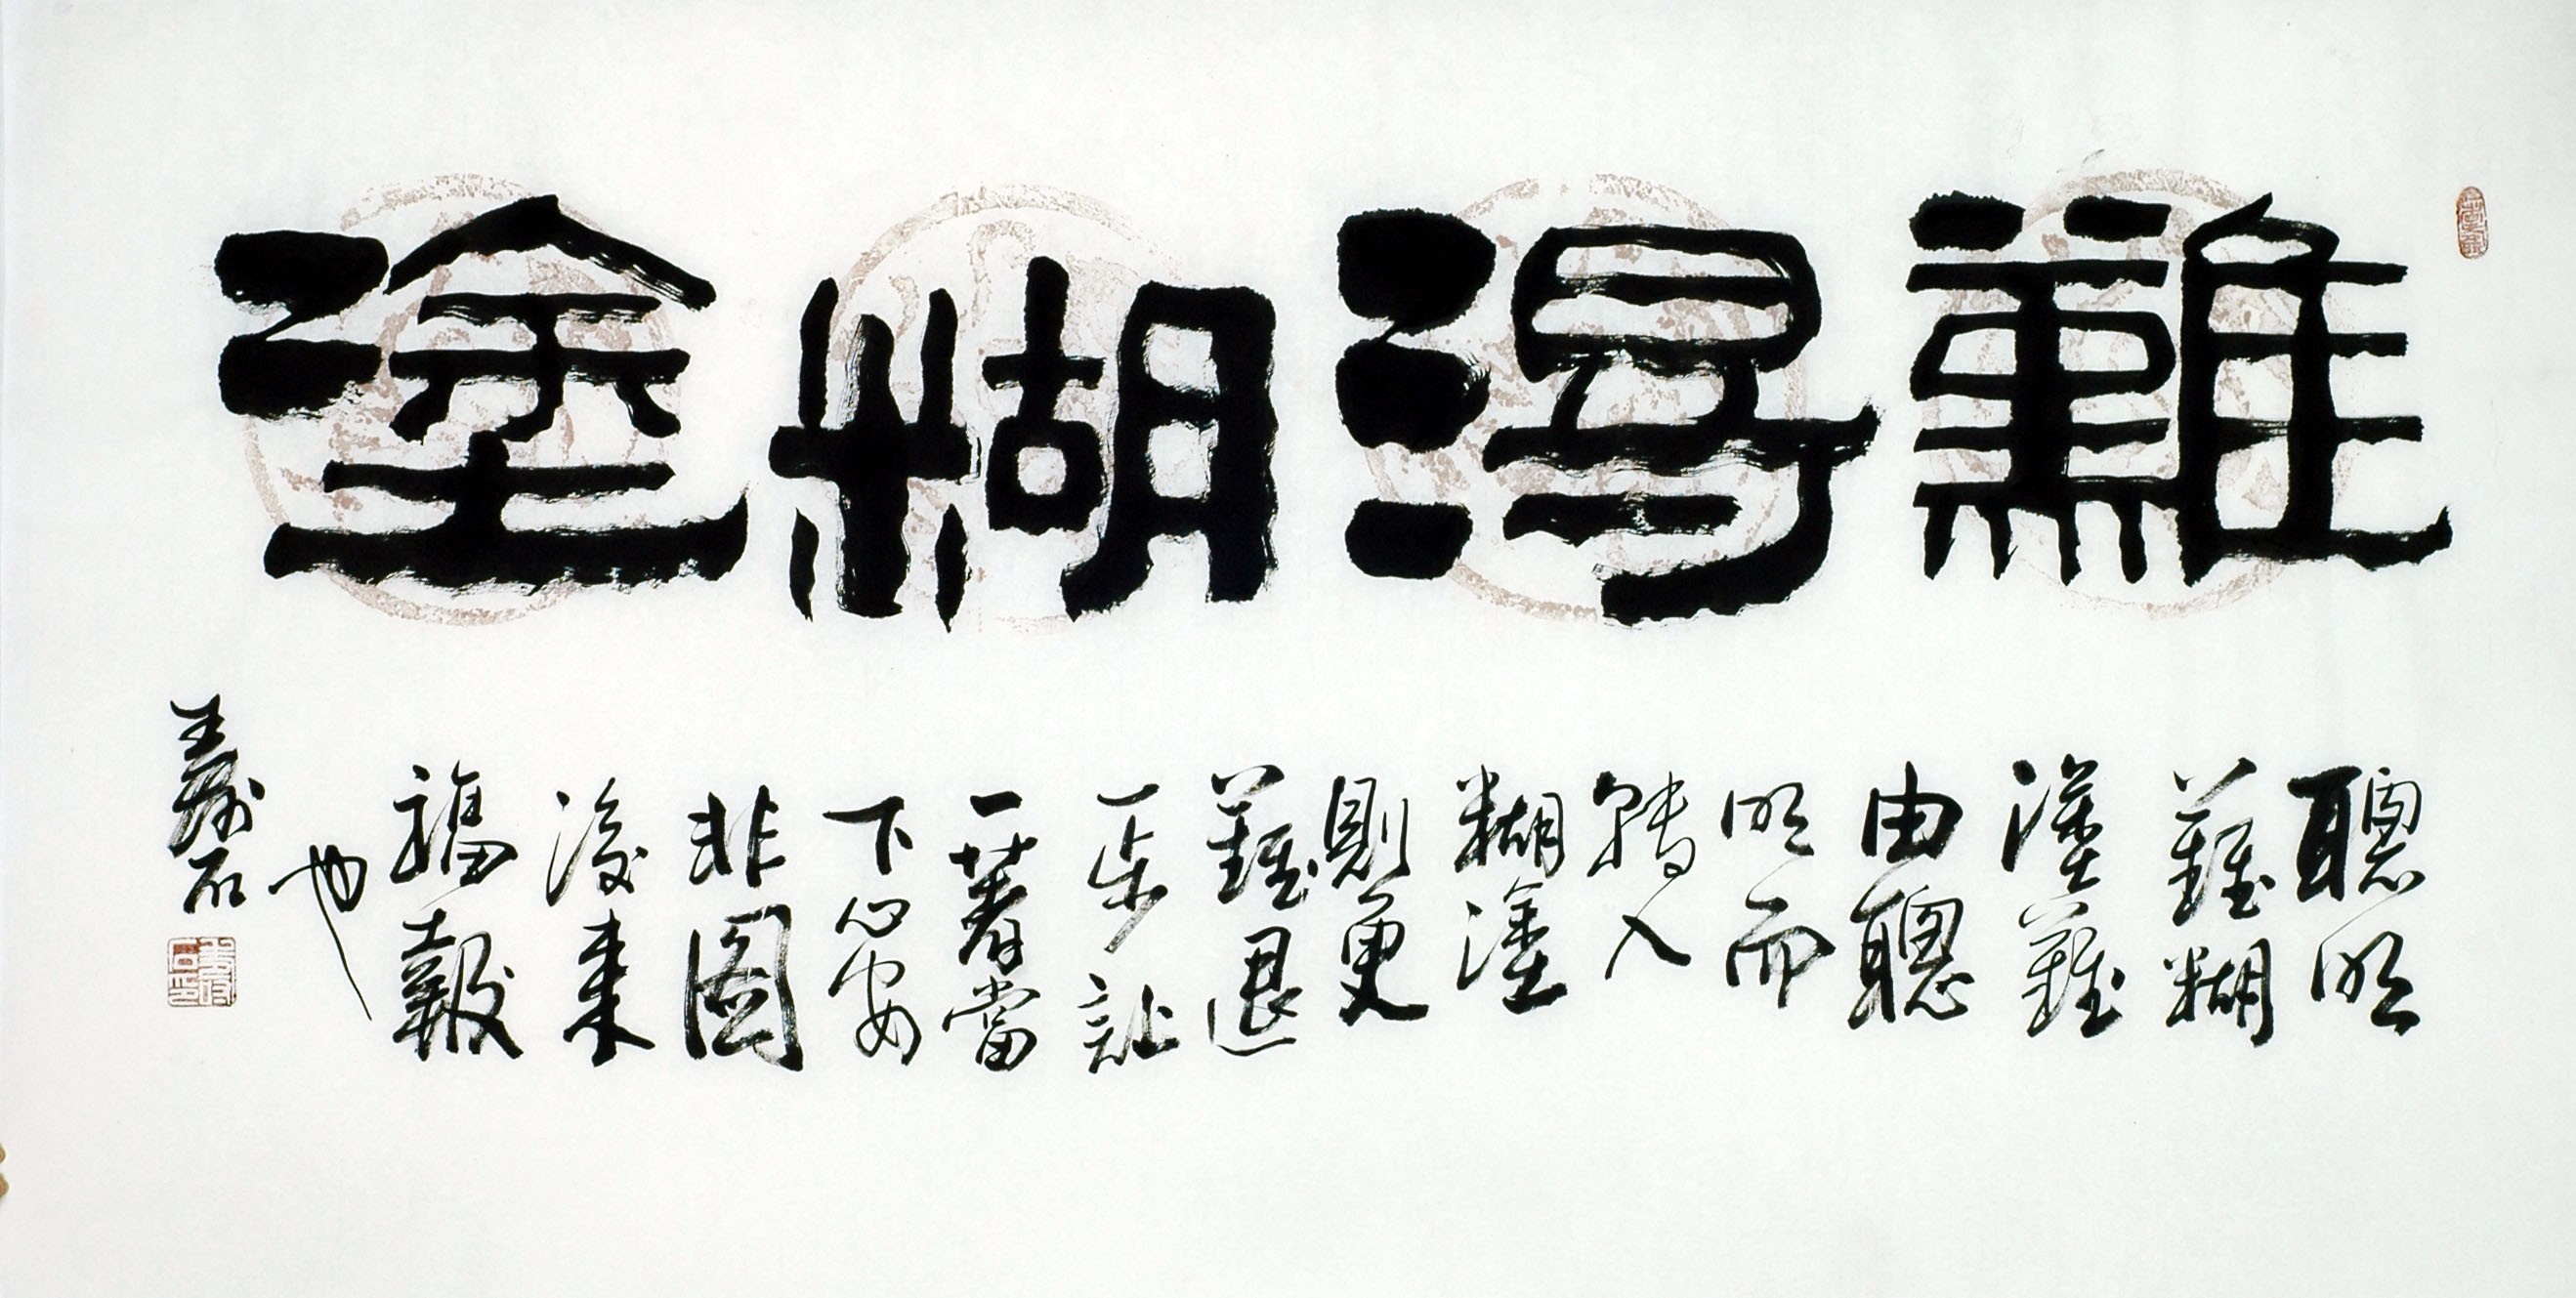 難得糊塗
聰明
難糊
塗難
由聰
明而
轉入
糊塗
則更
難退
一步让
一著當
下心安
非圖
後來
福報
也